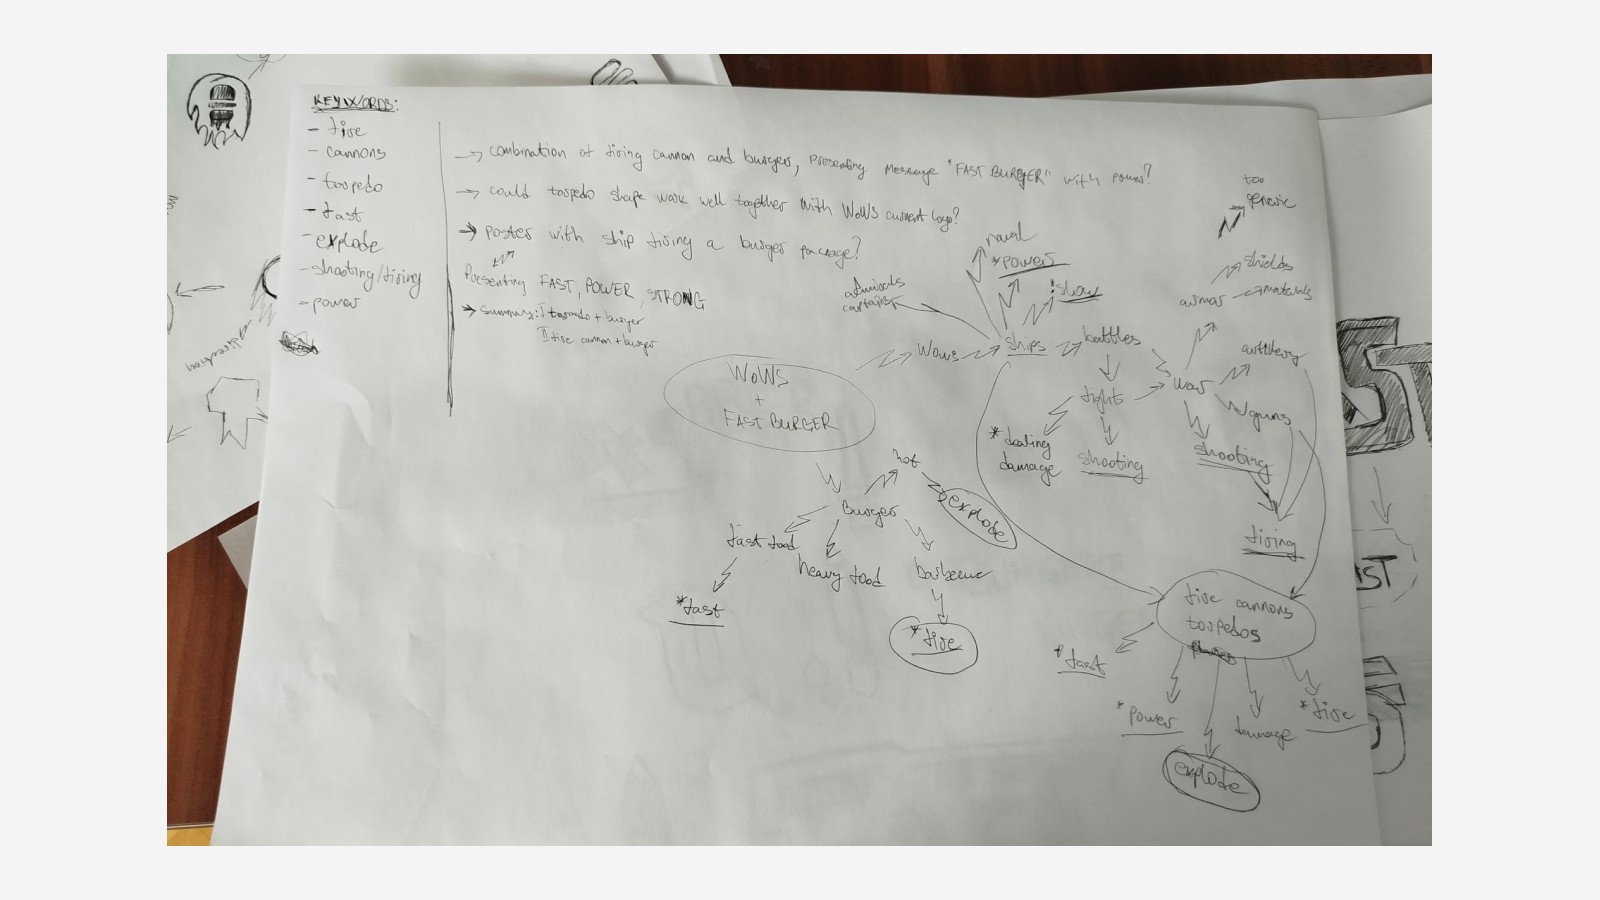 KEYWORDS:
- fire
- cannons
- torpedo
- fast
- explode
- shooting/firing
- power
→ combination of firing cannon and burgers, presenting message "FAST BURGER" with power?
→ could torpedo shape work well together with WoWS current logo?
→ poster with ship firing a burger package?
Presenting FAST, POWER, STRONG
→ Summary: I torpedo + burger
II fire cannon + burger
too
generic
naval
*power
!show
shields
materials
armor
admirals
captains
WoWS
ships
battles
artillery
war
fight
guns
WoWS
+
FAST BURGER
*dealing
damage
shooting
shooting
firing
hot
explode
Burger
fast food
heavy food
barbecue
*fast
*fire
fire cannons
torpedos
*fast
*power
explode
damage
*fire
direction
ST
ST